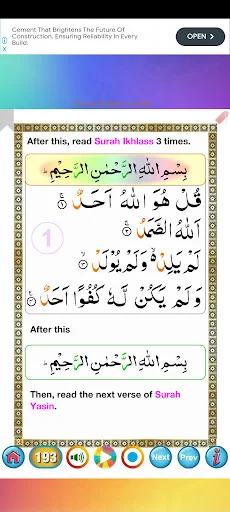 Cement That Brightens The Future Of
Construction, Ensuring Reliability In Every
Build.
OPEN >
After this, read Surah Ikhlass 3 times.
بِسْمِ اللهِ الرَّحْمٰنِ الرَّحِيْمِ
قُلْ هُوَ اللهُ اَحَدٌ ۚ ﴿۱﴾
اَللهُ الصَّمَدُ ۚ ﴿۲﴾
1
لَمْ يَلِدْ ۙ وَلَمْ يُوْلَدْ ۙ ﴿۳﴾
وَلَمْ يَكُنْ لَّهٗ كُفُوًا اَحَدٌ ﴿۴﴾
After this
بِسْمِ اللهِ الرَّحْمٰنِ الرَّحِيْمِ
Then, read the next verse of Surah
Yasin.
193
Next
Prev
i